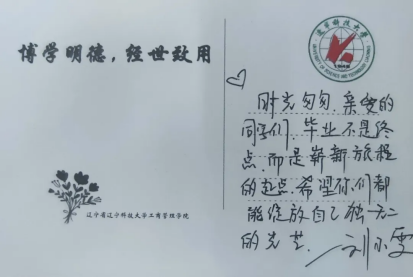 博学明德，经世致用
辽宁省辽宁科技大学工商管理学院
辽宁科技大学
UNIVERSITY OF SCIENCE AND TECHNOLOGY LIAONING
时光匆匆，亲爱的
同学们，毕业不是终
点，而是崭新旅程
的起点，希望你们都
能绽放自己独一无二
的光芒
刘小雯